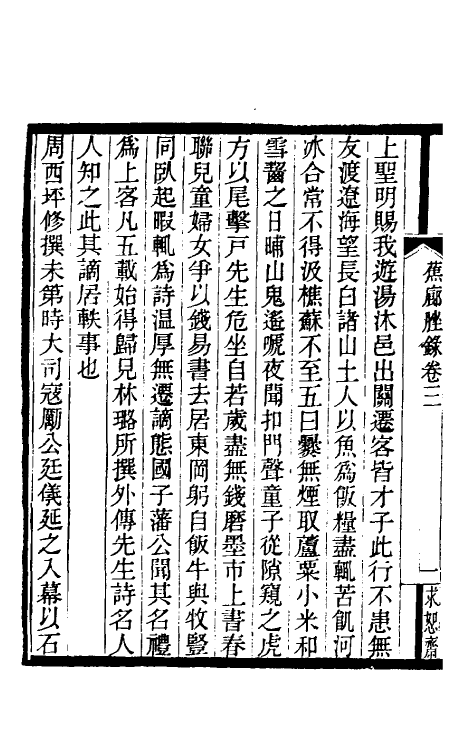 蕉廊脞錄卷三
一
求恕齋
上聖明賜我遊湯沐邑出關遷客皆才子此行不患無
友渡遼海望長白諸山土人以魚爲飯糧盡輒苦飢河
冰合常不得汲樵蘇不至五日爨無煙取蘆粟小米和
雪齧之日晡山鬼遙嗁夜聞扣門聲童子從隙窺之虎
方以尾擊戸先生危坐自若歲盡無錢磨墨市上書春
聯兒童婦女爭以錢易書去居東岡躬自飯牛與牧豎
同臥起暇輒爲詩温厚無遷謫態國子藩公聞其名禮
爲上客凡五載始得歸見林璐所撰外傳先生詩名人
人知之此其謫居軼事也
周西坪修撰未第時大司寇勵公廷儀延之入幕以石